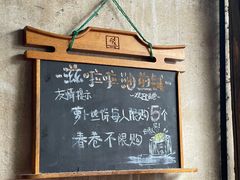 滋啦啦油煎铺
友情提示
萝卜丝饼每人限购5个
春卷不限购